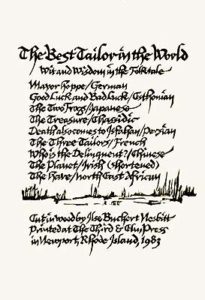 The Best Tailor in the World
Wit and Wisdom in the Folktale
Mayor Hoppe/German
Good Luck and Bad Luck/Esthonian
The Two Frogs/Japanese
The Treasure/Chassidic
Death also comes to Isfahan/Persian
The Three Tailors/French
Who is the Delinquent?/Chinese
The Planet/Irish (shortened)
The Hare/North East African
Cut in wood by Ilse Buchert Nesbitt
Printed at The Third & Elm Press
in Newport, Rhode Island, 1983